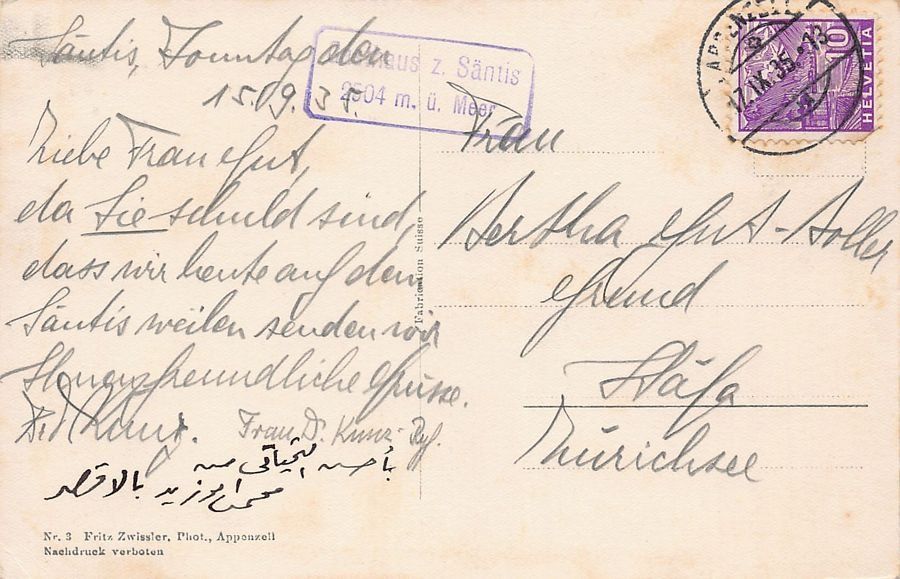 Säntis, Sonntag den
15.09.35.
Liebe Frau Egut,
da Sie schuld sind,
dass wir heute auf dem
Säntis weilen senden wir
Ihnen freundliche Grüsse.
Frau D. Kunz-
بأحسن التحياتي من
محمد ابو زيد بالاقصر
Nr. 3 Fritz Zwissler, Phot., Appenzell
Nachdruck verboten
Fabrication Suisse
haus z. Säntis
2504 m. ü. Meer
APPENZELL
17.IX.35.-13
10
HELVETIA
Frau
Bertha
Grund
Stäfa
Zürichsee